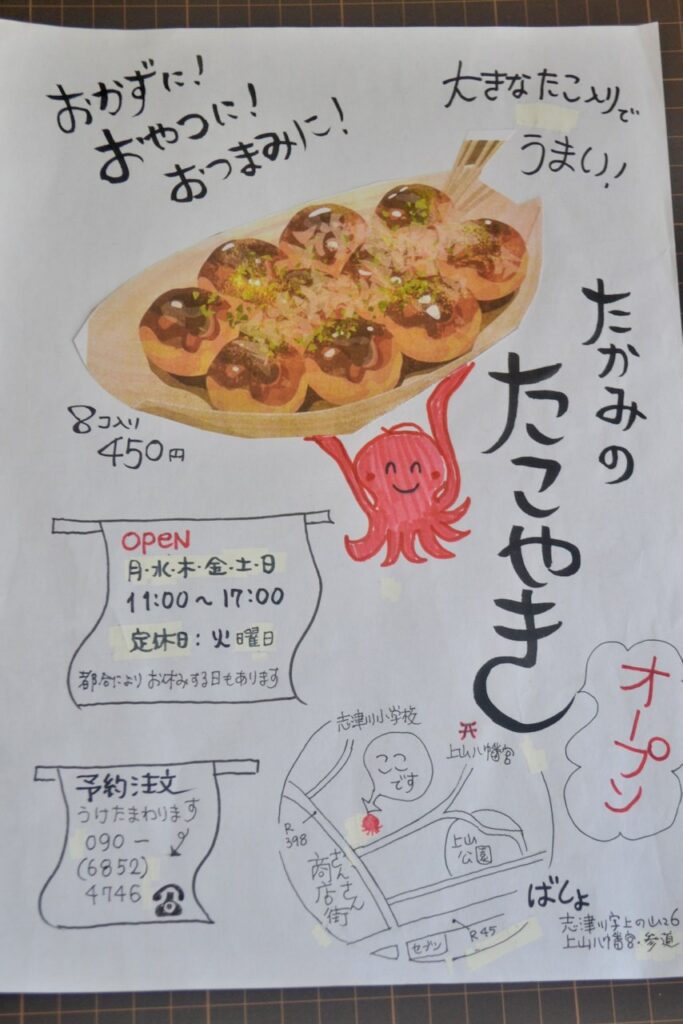 おかずに!
おやつに!
おつまみに!
大きなたこ入りで
うまい!
たかみの
たこやき
8コ入り
450円
OPEN
月・水・木・金・土・日
11:00〜17:00
定休日:火曜日
都合によりお休みする日もあります
オープン
予約注文
うけたまわります
090-
(6852)
4746
志津川小学校
上山八幡宮
ここ
です
R
398
さんさん
商店街
上山
公園
R45
セブン
ばしょ
志津川字上の山26
上山八幡宮・参道